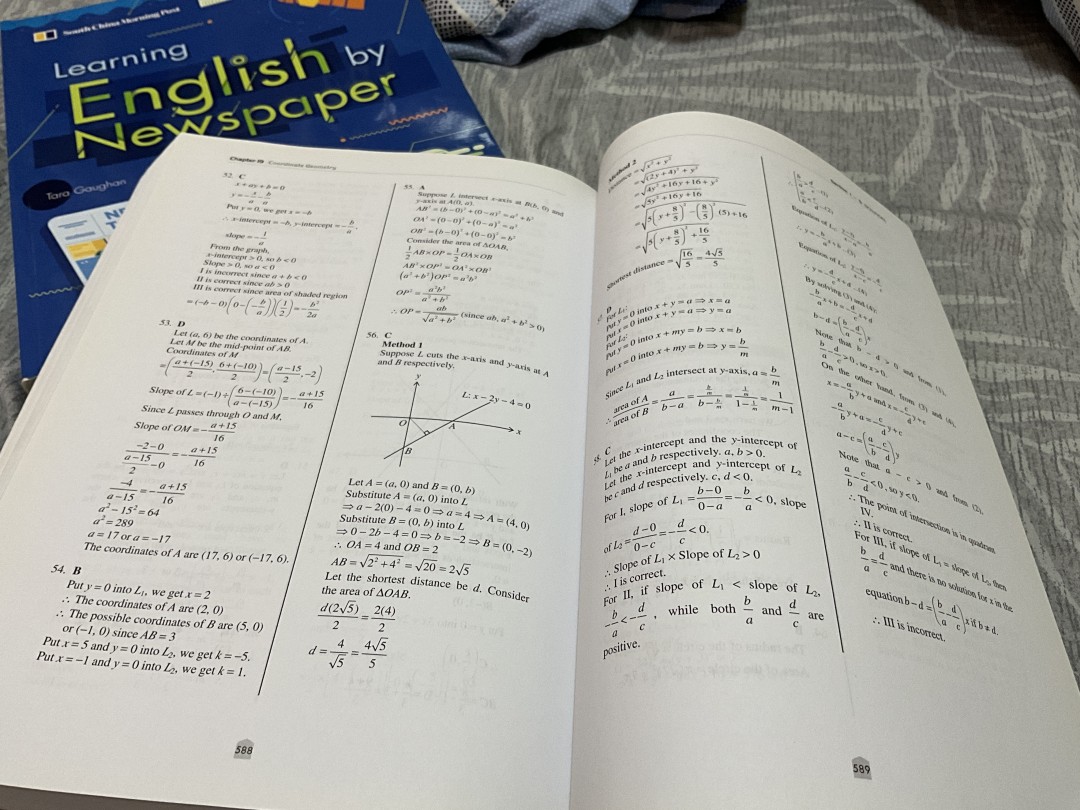 South China Morning Post
Learning
English by
Newspaper
Tara Gaughan
Chapter 19 Coordinate Geometry
52. C
x + ay + b = 0
Put y = 0, we get x = −b
∴ x-intercept = −b, y-intercept = −b/a,
slope = −1/a
From the graph,
x-intercept > 0, so b < 0
Slope > 0, so a < 0
I is incorrect since a + b < 0
II is correct since ab > 0
III is correct since area of shaded region
= (−b−0)(0−(−b/a))(1/2) = −b²/2a
53. D
Let (a, 6) be the coordinates of A.
Let M be the mid-point of AB.
Coordinates of M
= ((a+(−15))/2, (6+(−10))/2) = ((a−15)/2, −2)
Slope of L = (−1) ÷ ((6−(−10))/(a−(−15))) = −(a+15)/16
Since L passes through O and M,
Slope of OM = −(a+15)/16
(−2−0)/((a−15)/2 −0) = −(a+15)/16
−4/(a−15) = −(a+15)/16
a² − 15² = 64
a² = 289
a = 17 or a = −17
The coordinates of A are (17, 6) or (−17, 6).
54. B
Put y = 0 into L₁, we get x = 2
∴ The coordinates of A are (2, 0)
∴ The possible coordinates of B are (5, 0)
or (−1, 0) since AB = 3
Put x = 5 and y = 0 into L₂, we get k = −5.
Put x = −1 and y = 0 into L₂, we get k = 1.
55. A
Suppose L intersect x-axis at B(b, 0) and
y-axis at A(0, a).
AB² = (b−0)² + (0−a)² = a² + b²
OA² = (0−0)² + (0−a)² = a²
OB² = (b−0)² + (0−0)² = b²
Consider the area of ΔOAB,
1/2 AB × OP = 1/2 OA × OB
AB² × OP² = OA² × OB²
(a² + b²)OP² = a²b²
OP² = a²b²/(a² + b²)
∴ OP = ab/√(a² + b²) (since ab, a² + b² > 0)
56. C
Method 1
Suppose L cuts the x-axis and y-axis at A
and B respectively.
y
L: x − 2y − 4 = 0
O
A
x
B
Let A = (a, 0) and B = (0, b)
Substitute A = (a, 0) into L
⇒ a − 2(0) − 4 = 0 ⇒ a = 4 ⇒ A = (4, 0)
Substitute B = (0, b) into L
⇒ 0 − 2b − 4 = 0 ⇒ b = −2 ⇒ B = (0, −2)
∴ OA = 4 and OB = 2
AB = √(2² + 4²) = √20 = 2√5
Let the shortest distance be d. Consider
the area of ΔOAB.
d(2√5)/2 = 2(4)/2
d = 4/√5 = 4√5/5
588
Method 2
= √(x² + y²)
= √((2y + 4)² + y²)
= √(4y² + 16y + 16 + y²)
= √(5y² + 16y + 16)
= √(5(y + 8/5)² − (8/5)²(5) + 16
= √(5(y + 8/5)² + 16/5
Shortest distance = √(16/5) = 4√5/5
D
For L₁:
Put y = 0 into x + y = a ⇒ x = a
Put x = 0 into x + y = a ⇒ y = a
For L₂:
Put y = 0 into x + my = b ⇒ x = b
Put x = 0 into x + my = b ⇒ y = b/m
Since L₁ and L₂ intersect at y-axis, a = b/m
∴ area of A/area of B = a/(b−a) = (b/m)/(b − b/m) = (1/m)/(1 − 1/m) = 1/(m−1)
C
Let the x-intercept and the y-intercept of
L₁ be a and b respectively. a, b > 0.
Let the x-intercept and y-intercept of L₂
be c and d respectively. c, d < 0.
For I, slope of L₁ = (b−0)/(0−a) = −b/a < 0, slope
of L₂ = (d−0)/(0−c) = −d/c < 0.
∴ Slope of L₁ × Slope of L₂ > 0
∴ I is correct.
For II, if slope of L₁ < slope of L₂,
−b/a < −d/c, while both b/a and d/c are
positive.
By solving (3) and (4):
b − d = (b/a − d/c)x
Note that b − d > 0 and from (1),
b/a − d/c > 0, so x > 0.
On the other hand, from (3) and (4),
x = −a/b y + a and x = −c/d y + c
−a/b y + a = −c/d y + c
a − c = (a/b − c/d)y
Note that a − c > 0 and from (2),
a/b − c/d < 0, so y < 0.
∴ The point of intersection is in quadrant
IV.
∴ II is correct.
For III, if slope of L₁ = slope of L₂, then
b/a = d/c and there is no solution for x in the
equation b − d = (b/a − d/c)x if b ≠ d.
∴ III is incorrect.
589